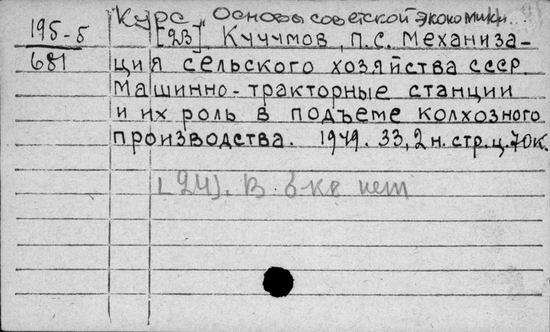 Курс Основы советской экономики...
195-5 [23] Кучумов, П.С. Механиза-
681 ция сельского хозяйства СССР.
Машинно-тракторные станции
и их роль в подъеме колхозного
производства. 1949. 33,2 н.стр.ц.70к.
[24]. В б-ке нет